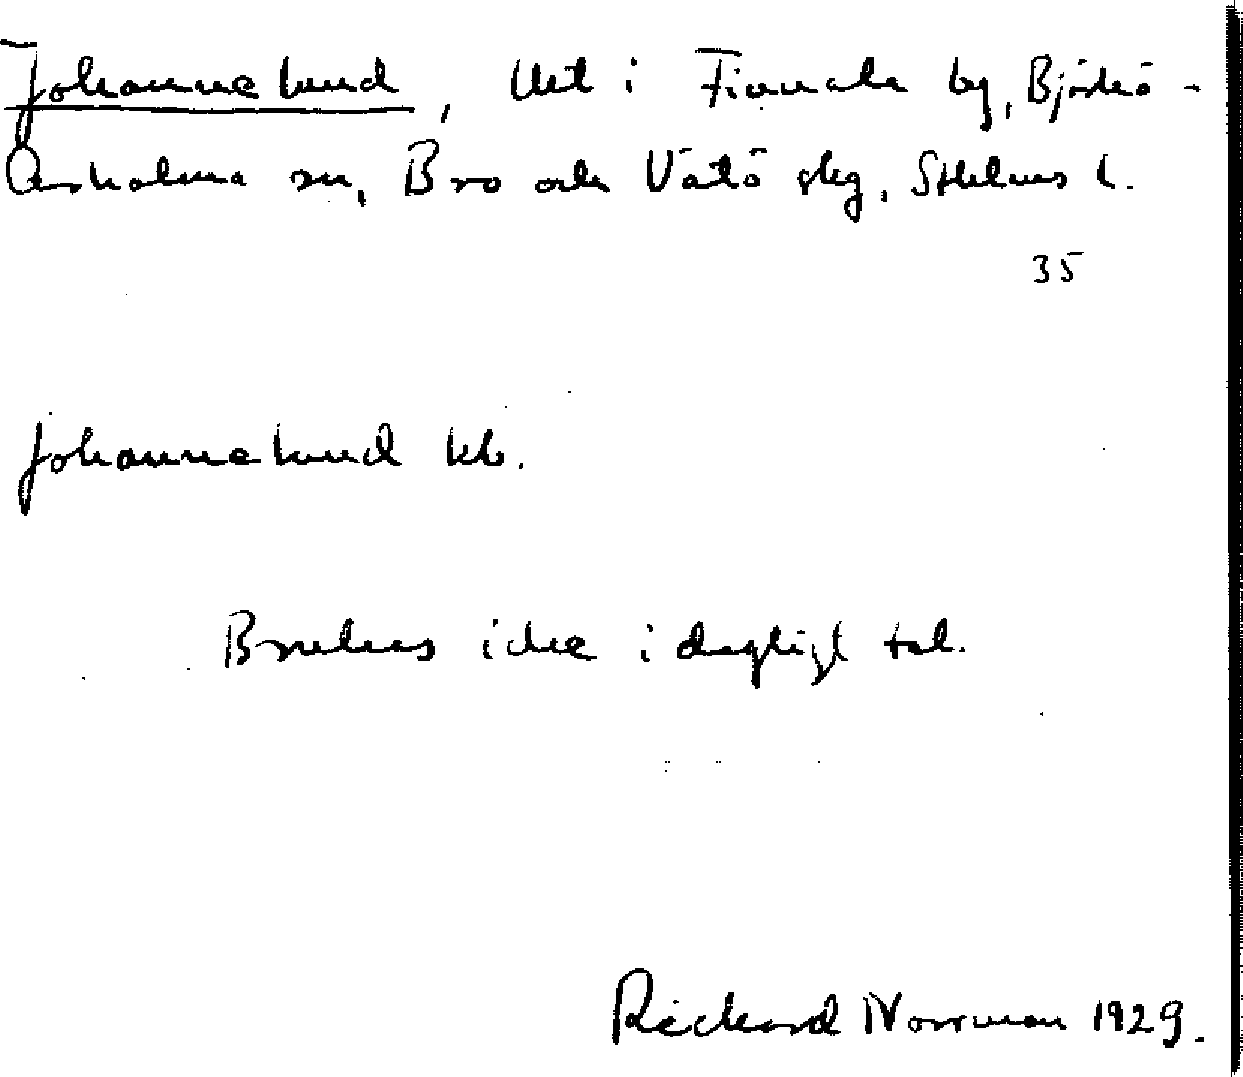 Johannelund, Ut i Finnala by, Björkö-
Arholma sn, Bro och Vätö skg, Sthlms l.
35
Johannelund kb.
Brukas icke i dagligt tal.
Rickard Norrman 1929.